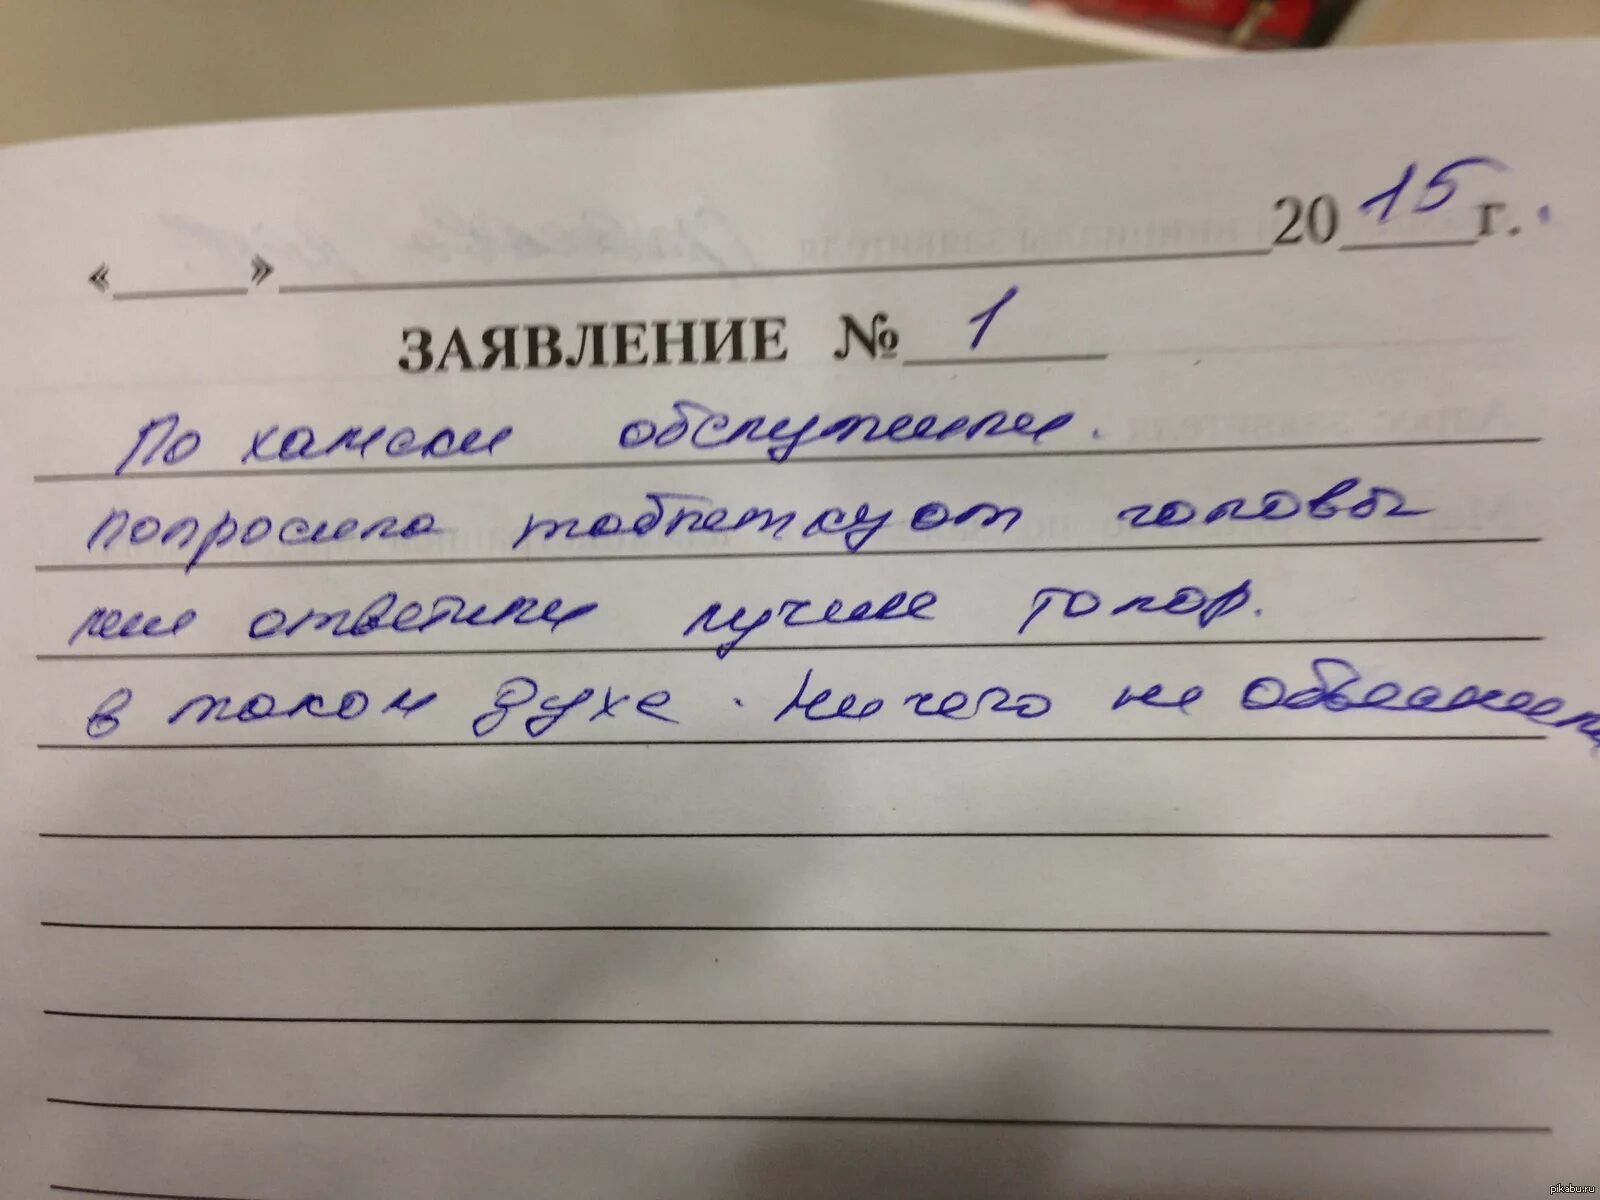 «____» ____________ 20 15 г.
ЗАЯВЛЕНИЕ № 1
По хамски обслужили.
попросила таблетку от головы
мне ответили лучше топор.
в таком духе. Ничего не объяснили
pikabu.ru